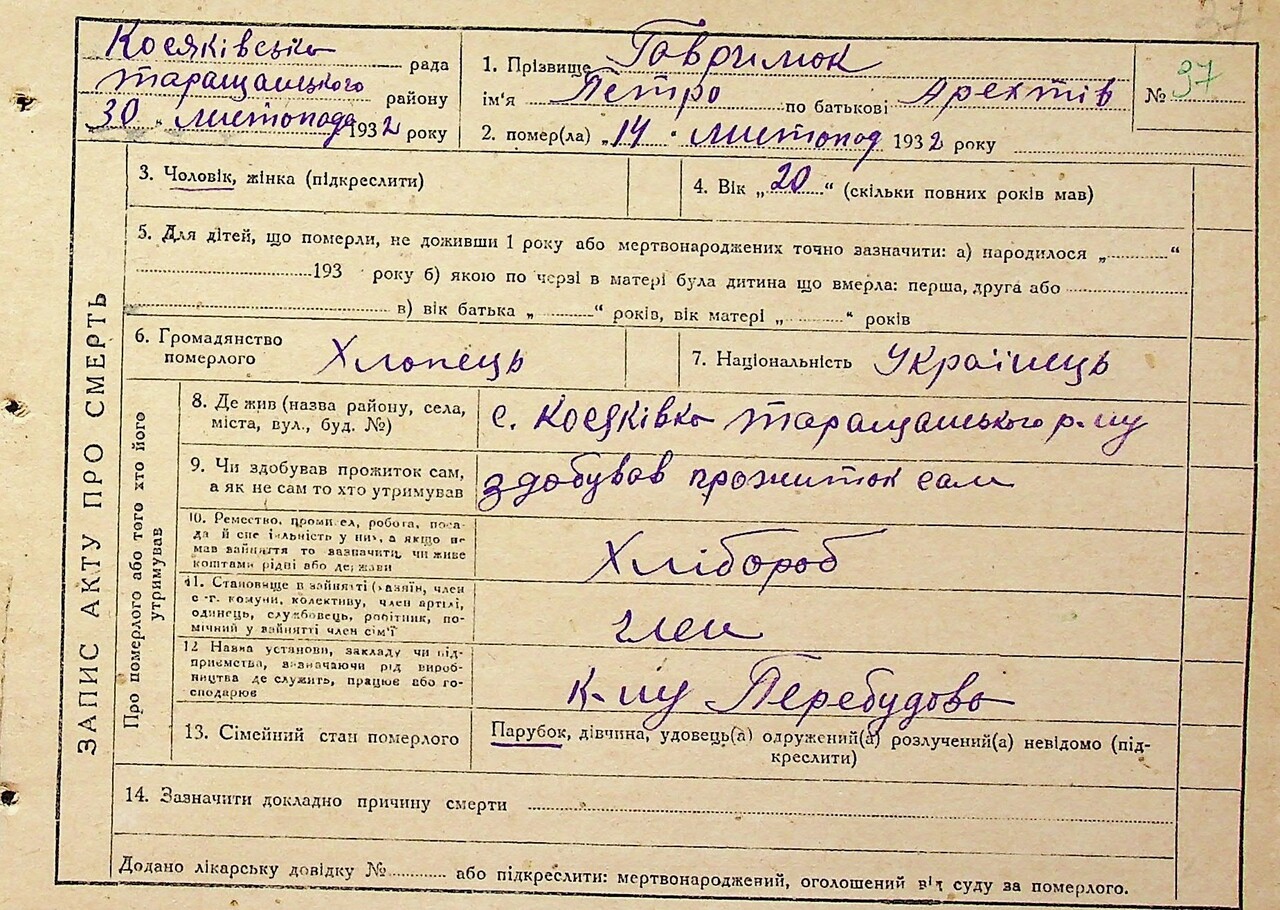 27
Косяківська рада
таращанського району
30 „ листопада 1932 року
1. Прізвище Гаврилюк
ім'я Петро по батькові Арехтів
№ 37
2. помер(ла) „14 " листопад 1932 року
ЗАПИС АКТУ ПРО СМЕРТЬ
3. Чоловік, жінка (підкреслити)
4. Вік „ 20 “ (скільки повних років мав)
5. Для дітей, що померли, не доживши 1 року або мертвонароджених точно зазначити: а) народилося „ “
193 року б) якою по черзі в матері була дитина що вмерла: перша, друга або
в) вік батька „ “ років, вік матері „ “ років
6. Громадянство
померлого Хлопець
7. Національність Українець
Про померлого або того хто його
утримував
8. Де жив (назва району, села,
міста, вул., буд. №) с. Косяківка таращанського р-ну
9. Чи здобував прожиток сам,
а як не сам то хто утримував здобував прожиток сам
10. Ремество, промисел, робота, поса-
да й спеціяльність у них, а якщо не
мав зайняття то зазначити, чи живе
коштами рідні або держави
Хлібороб
11. Становище в зайнятті (хазяїн, член
с.-г. комуни, колективу, член артілі,
одинець, службовець, робітник, по-
мічний у зайнятті член сім'ї
член
12 Назва установи, закладу чи під-
приємства, зазначаючи рід вироб-
ництва де служить, працює або го-
сподарює
к-пу Перебудова
13. Сімейний стан померлого
Парубок, дівчина, удовець(а) одружений(а) розлучений(а) невідомо (під-
креслити)
14. Зазначити докладно причину смерти
Додано лікарську довідку № або підкреслити: мертвонароджений, оголошений від суду за померлого.